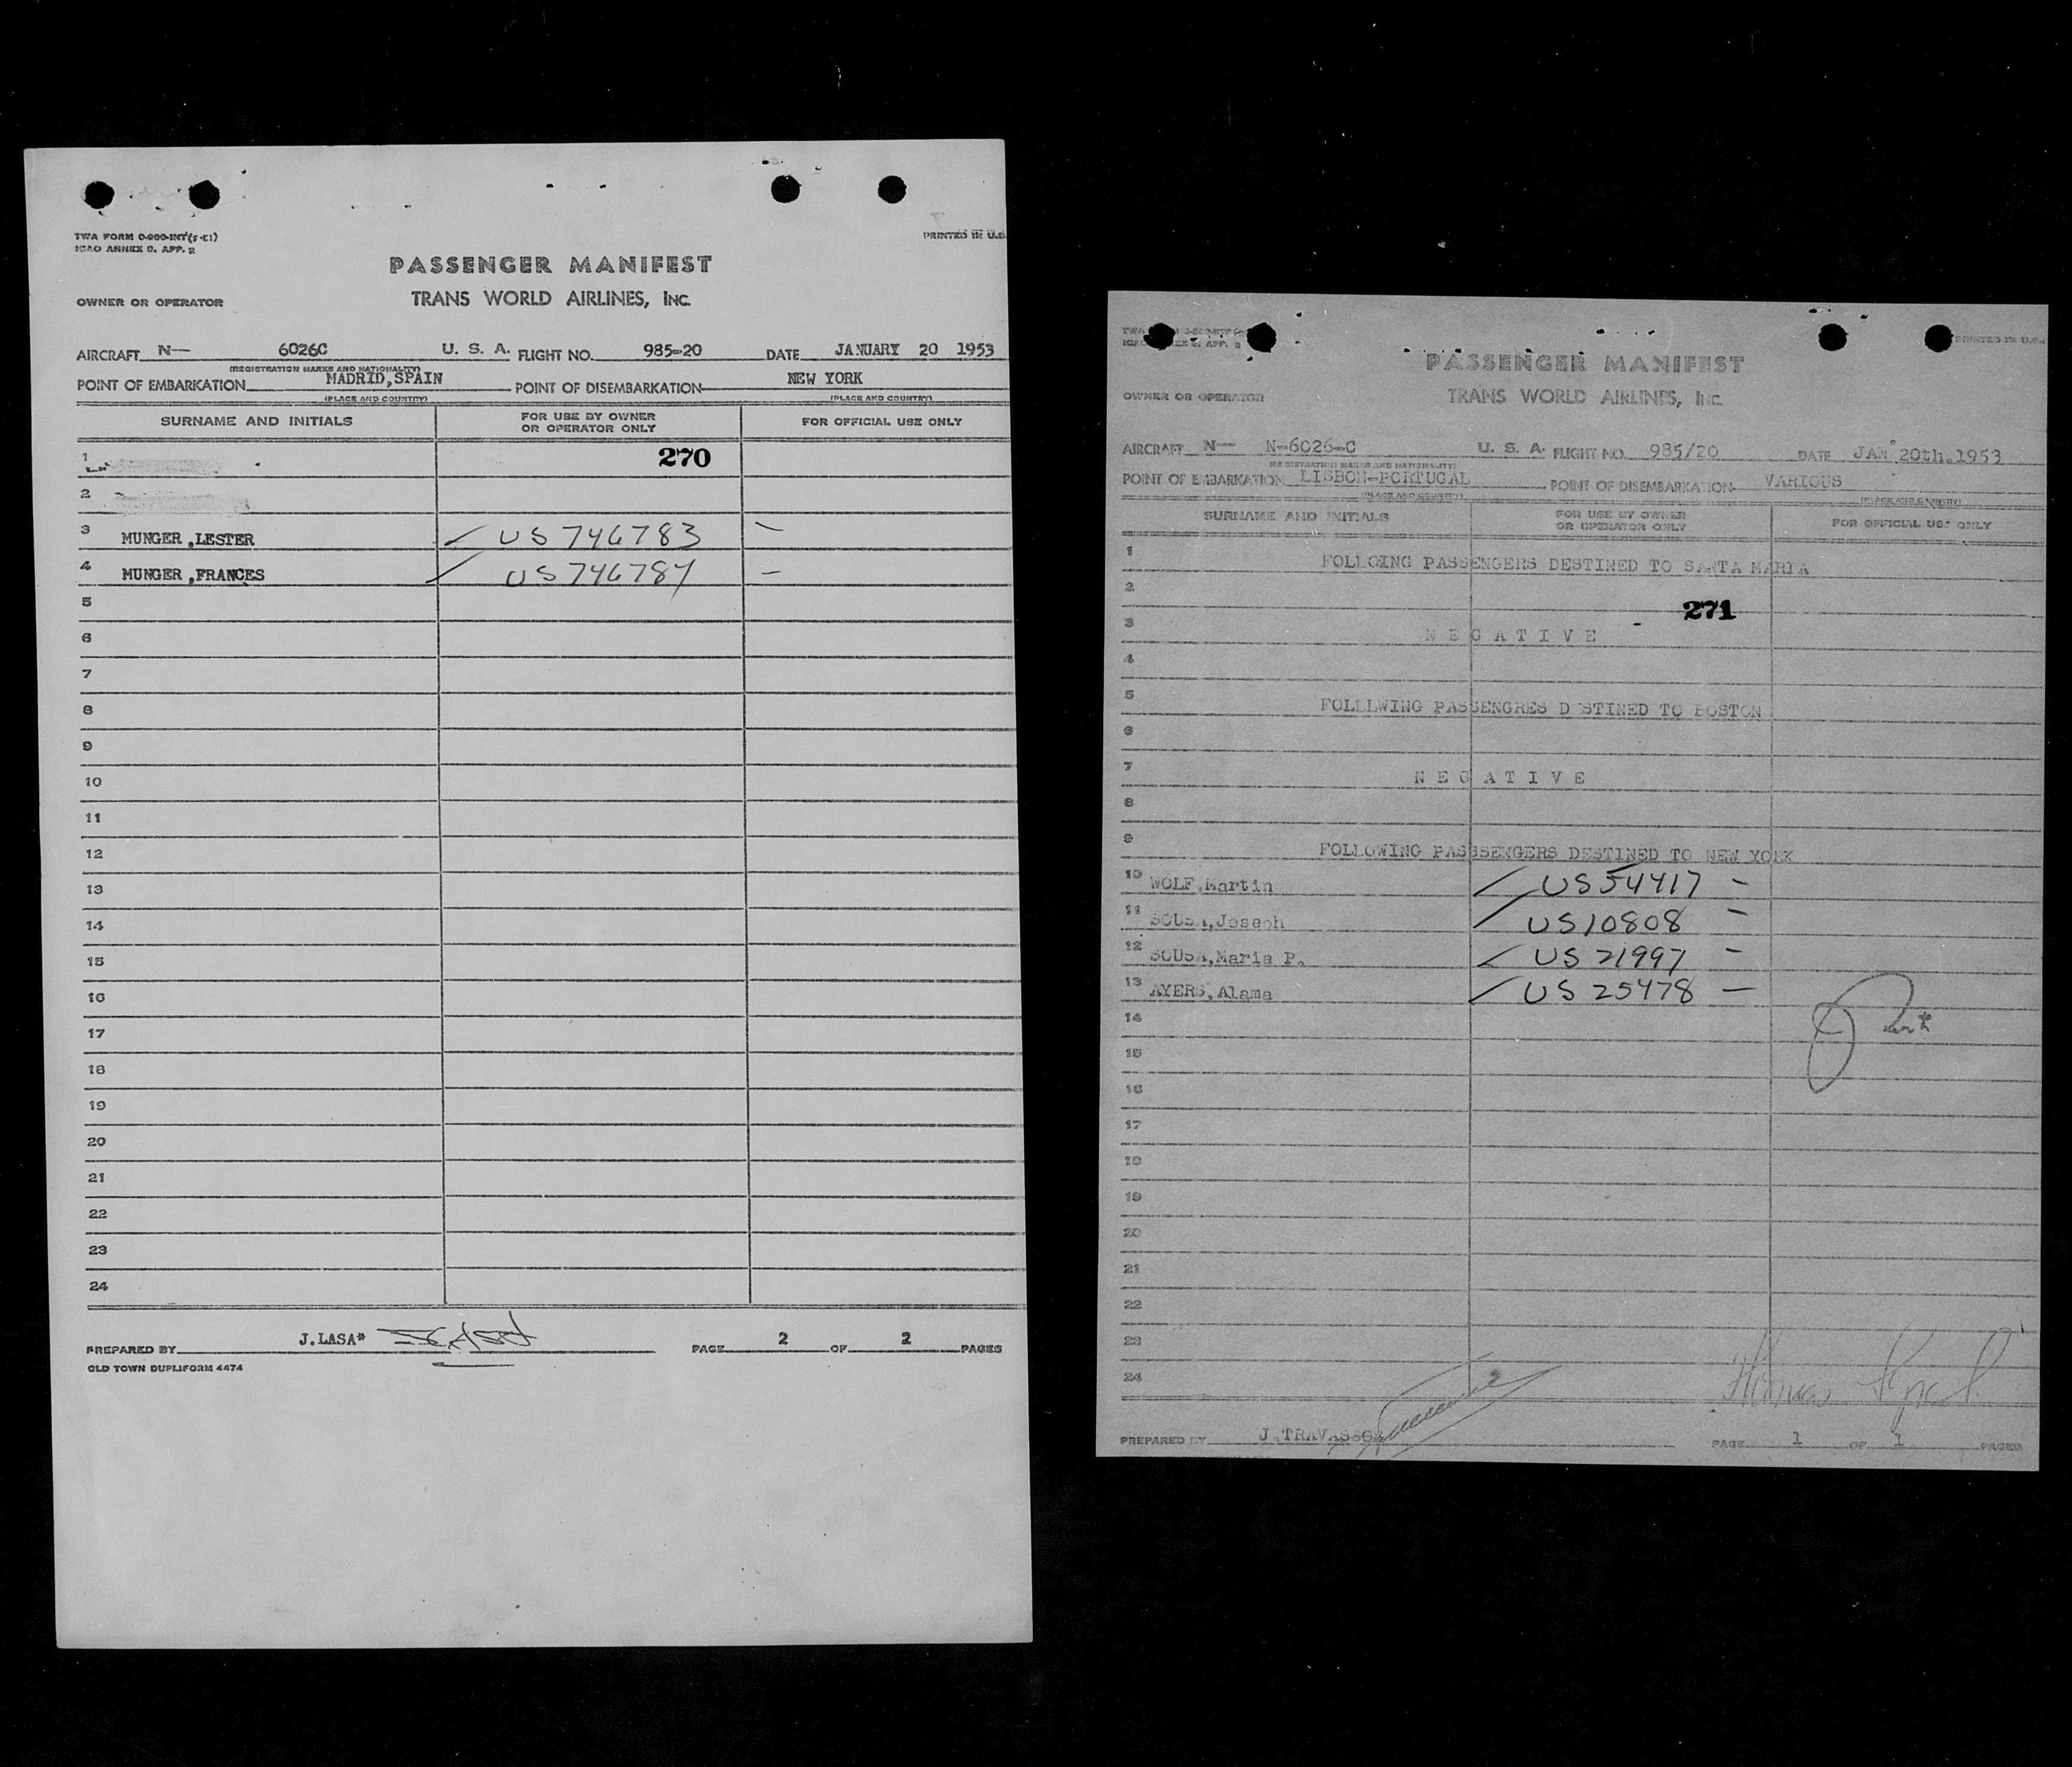 TWA FORM 0-900-INT (5-51)
ICAO ANNEX 9. APP. 2
PRINTED IN U.S.
PASSENGER MANIFEST
OWNER OR OPERATOR TRANS WORLD AIRLINES, INC.
AIRCRAFT N— 6026C U. S. A. FLIGHT NO. 985-20 DATE JANUARY 20 1953
(REGISTRATION MARKS AND NATIONALITY)
POINT OF EMBARKATION MADRID,SPAIN POINT OF DISEMBARKATION NEW YORK
(PLACE AND COUNTRY) (PLACE AND COUNTRY)
SURNAME AND INITIALS FOR USE BY OWNER OR OPERATOR ONLY FOR OFFICIAL USE ONLY
1 270
2
3 MUNGER ,LESTER US 746783 —
4 MUNGER ,FRANCES US 746784 —
5
6
7
8
9
10
11
12
13
14
15
16
17
18
19
20
21
22
23
24
PREPARED BY J.LASA* PAGE 2 OF 2 PAGES
OLD TOWN DUPLIFORM 4474
TWA
PRINTED IN U.S.
PASSENGER MANIFEST
OWNER OR OPERATOR TRANS WORLD AIRLINES, INC.
AIRCRAFT N— N-6026-C U. S. A. FLIGHT NO. 985/20 DATE JAN 20th.1953
(REGISTRATION MARKS AND NATIONALITY)
POINT OF EMBARKATION LISBON-PORTUGAL POINT OF DISEMBARKATION VARIOUS
(PLACE AND COUNTRY) (PLACE AND COUNTRY)
SURNAME AND INITIALS FOR USE BY OWNER OR OPERATOR ONLY FOR OFFICIAL USE ONLY
1 FOLLOING PASSENGERS DESTINED TO SANTA MARIA
2
271
3 N E G A T I V E
4
5 FOLLLWING PASSENGRES D STINED TO BOSTON
6
7 N E G A T I V E
8
9 FOLLOWING PASSSENGERS DESTINED TO NEW YORK
10 WOLF,Martin US 54417 —
11 SOUSA,Joseph US 10808 —
12 SOUSA,Maria P. US 21997 —
13 AYERS,Alama US 25478 —
14
15
16
17
18
19
20
21
22
23
24
PREPARED BY J.TRAVASSOS PAGE 1 OF 1 PAGES